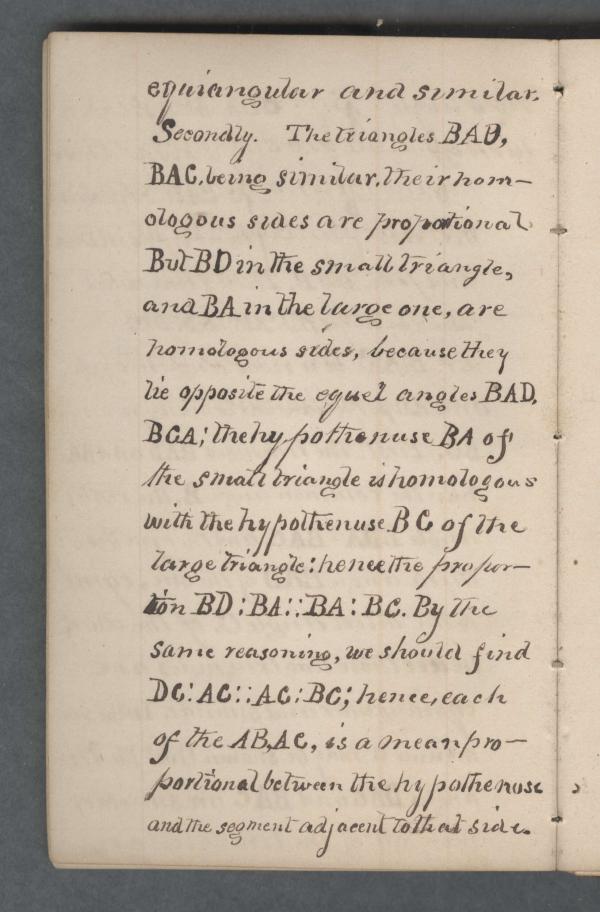 equiangular and similar.
Secondly. The triangles BAD,
BAC, being similar, their hom-
ologous sides are propotional
But BD in the small triangle,
and BA in the large one, are
homologous sides, because they
lie opposite the equel angles BAD,
BCA; the hypothenuse BA of
the small triangle is homologous
with the hypothenuse BC of the
large triangle: hence the propor-
tion BD : BA :: BA : BC. By the
same reasoning, we should find
DC : AC :: AC : BC; hence, each
of the AB, AC, is a mean pro-
portional between the hypothenose
and the segment adjacent to that side.